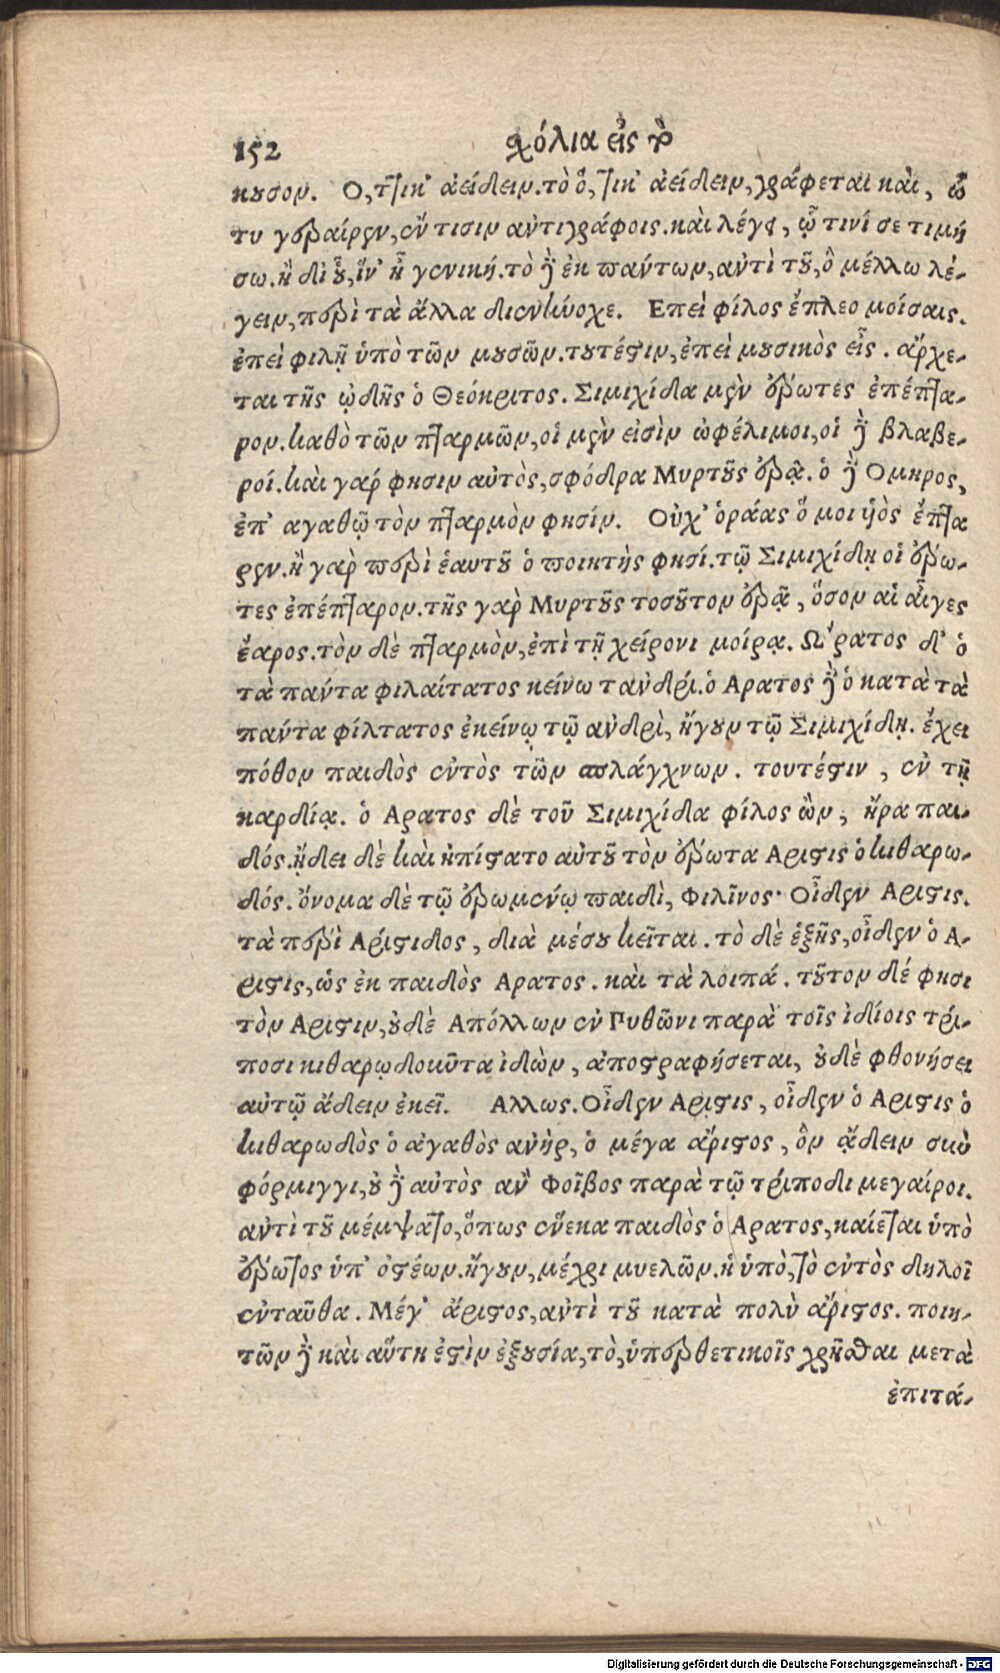 152 σχόλια εἰς τὸ
κουσον. Ο, τ̓τικ' ἀείδειν. τὸ ὅ,τικ' ἀείδειν, γράφεται καὶ, ᾧ
τυ γεραίρεν, ἔν τισιν ἀντιγράφοις. καὶ λέγει, ᾧ τινί σε τιμή
σω. ἢ δι' οὗ, ἵν' ᾖ γενική. τὸ δὲ ἐκ πάντων, ἀντὶ τοῦ, ὃ μέλλω λέ-
γειν, περὶ τὰ ἄλλα διενήνοχε. Επεὶ φίλος ἔπλεο μοίσαις.
ἐπεὶ φιλῇ ὑπὸ τῶν μουσῶν. τουτέστιν, ἐπεὶ μουσικὸς εἶς. ἄρχε-
ται τῆς ᾠδῆς ὁ Θεόκριτος. Σιμιχίδα μὲν ἔρωτες ἐπέπτα-
ρον. καθὸ τῶν πταρμῶν, οἱ μὲν εἰσὶν ὠφέλιμοι, οἱ δὲ βλαβε-
ροί. καὶ γάρ φησιν αὐτὸς, σφόδρα Μυρτοῦς ἐρᾷ. ὁ δὲ Ομηρος,
ἐπ' αγαθῷ τὸν πταρμὸν φησίν. Οὐχ' ὁράας ὅ μοι υἱὸς ἔπτα
ρεν. ἢ γὰρ περὶ ἑαυτοῦ ὁ ποιητής φησί. τῷ Σιμιχίδῃ οἱ ἔρω-
τες ἐπέπταρον. τῆς γὰρ Μυρτοῦς τοσοῦτον ἐρᾷ, ὅσον αἱ αἶγες
ἔαρος. τὸν δὲ πταρμὸν, ἐπὶ τῇ χείρονι μοίρᾳ. Ὥρατος δ' ὁ
τὰ πάντα φιλαίτατος κείνω τανδρί. ὁ Αρατος δὲ ὁ κατὰ τὰ
πάντα φίλτατος ἐκείνῳ τῷ ανδρὶ, ἤγουν τῷ Σιμιχίδῃ. ἔχει
πόθον παιδὸς ἐντὸς τῶν σπλάγχνων. τουτέστιν, ἐν τῇ
καρδίᾳ. ὁ Αρατος δὲ τοῦ Σιμιχίδα φίλος ὢν, ἤρα παι-
δός. ᾔδει δὲ καὶ ἠπίστατο αὐτοῦ τὸν ἔρωτα Αριστις ὁ κιθαρω-
δός. ὄνομα δὲ τῷ ἐρωμένῳ παιδὶ, Φιλῖνος· Οἶδεν Αριστις.
τὰ περὶ Αρίστιδος, διὰ μέσου κεῖται. τὸ δὲ ἑξῆς, οἶδεν ὁ Α-
ριστις, ὡς ἐκ παιδὸς Αρατος. καὶ τὰ λοιπά. τοῦτον δέ φησι
τὸν Αριστιν, οὐδὲ Απόλλων ἐν Γυθῶνι παρὰ τοῖς ἰδίοις τρί-
ποσι κιθαρῳδοῦντα ἰδὼν, ἀποστραφήσεται, οὐδὲ φθονήσει
αὐτῷ ἄδειν ἐκεῖ. Αλλως. Οἶδεν Αριστις, οἶδεν ὁ Αριστις ὁ
κιθαρωδὸς ὁ αγαθὸς ανὴρ, ὁ μέγα ἄριστος, ὃν ᾄδειν σὺν
φόρμιγγι, οὐ δὲ αὐτὸς ἂν Φοῖβος παρὰ τῷ τρίποδι μεγαίροι.
αντὶ τοῦ μέμψαιτο, ὅπως ἕνεκα παιδὸς ὁ Αρατος, καίεται ὑπὸ
ἔρωτος ὑπ' ὀστέων. ἤγουν, μέχρι μυελῶν. ἡ ὑπὸ, τὸ ἐντὸς δηλοῖ
ἐνταῦθα. Μέγ' ἄριστος, αντὶ τοῦ κατὰ πολὺ ἄριστος. ποιη-
τῶν δὲ καὶ αὕτη ἐστὶν ἐξουσία, τὸ, ὑπερθετικοῖς χρῆσθαι μετὰ
ἐπιτά-
Digitalisierung gefördert durch die Deutsche Forschungsgemeinschaft - DFG